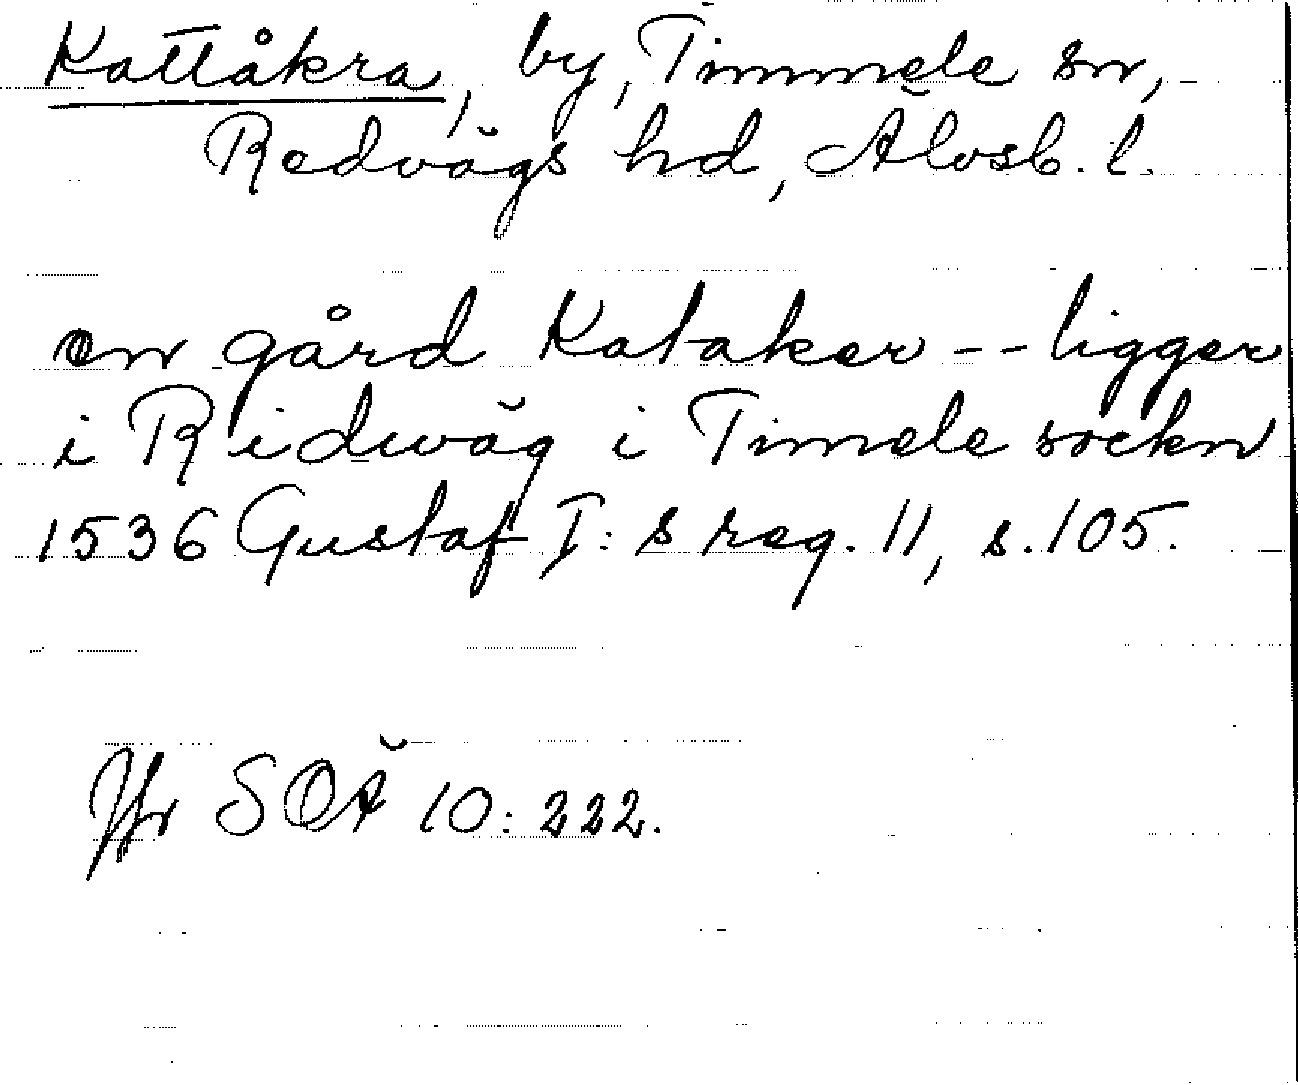 Kattåkra, by, Timmele sn,
Redvägs hd, Älvsb. l.
en gård Kataker -- ligger
i Ridwäg i Timele sockn
1536 Gustaf I:s reg. 11, s. 105.
Jfr SOÄ 10: 222.